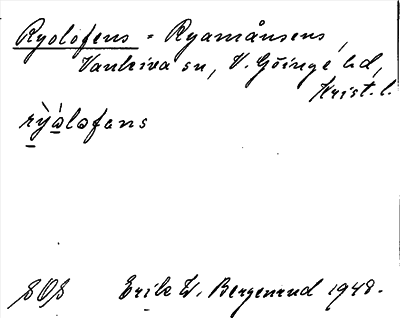 Ryolofens = Ryamånsens,
Vankiva sn, V. Göinge hd,
Krist. l.
rỳòlofens
SOS Erik W. Bergenrud 1948.